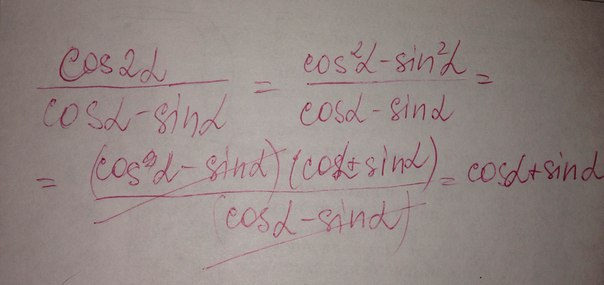 cos2α / cosα - sinα = cos²α - sin²α / cosα - sinα =
= (cos²α - sinα)(cosα + sinα) / (cosα - sinα) = cosα + sinα